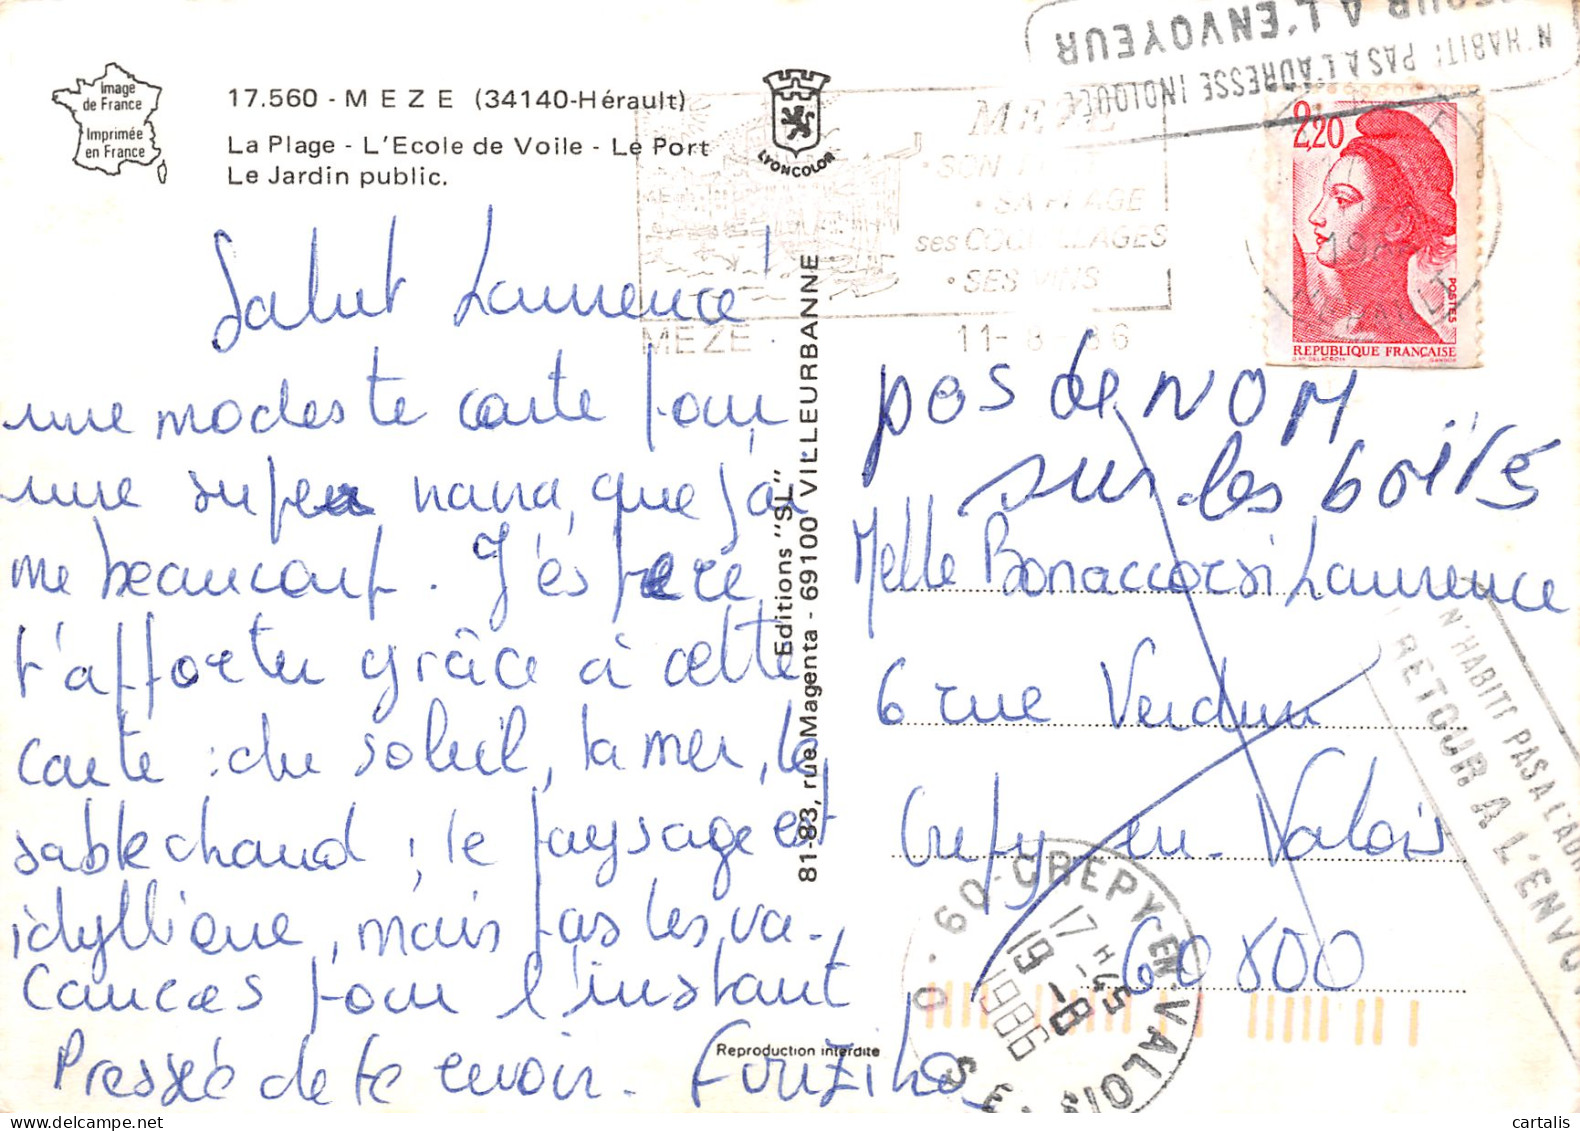 Image
de France
Imprimée
en France
17.560 - MEZE (34140-Hérault)
La Plage - L'Ecole de Voile - Le Port
Le Jardin public.
LYONCOLOR
MEZE
SA PLAGE
ses COQUILLAGES
• SES VINS
MEZE
11- 8 - 86
N'HABITE PAS A L'ADRESSE INDIQUÉE
RETOUR A L'ENVOYEUR
2,20
POSTES
REPUBLIQUE FRANÇAISE
Salut Laurence !
une modeste carte pour
une super nana, que j'ai
me beaucoup. J'espère
t'apporter grâce à cette
carte : du soleil, la mer, le
sable chaud ; le paysage est
idyllique, mais pas les va-
cances pour l'instant
Pressée de te revoir. Fouziha
Editions "SL"
81-83, rue Magenta - 69100 VILLEURBANNE
Reproduction interdite
pas de NOM
sur les boites
Melle Bonaccorsi Laurence
6 rue Verdun
Crépy-en-Valois
60800
60 CREPY-EN-VALOIS
17 H 45
19 -8
1986
N'HABITE PAS A L'ADR
RETOUR A L'ENVO